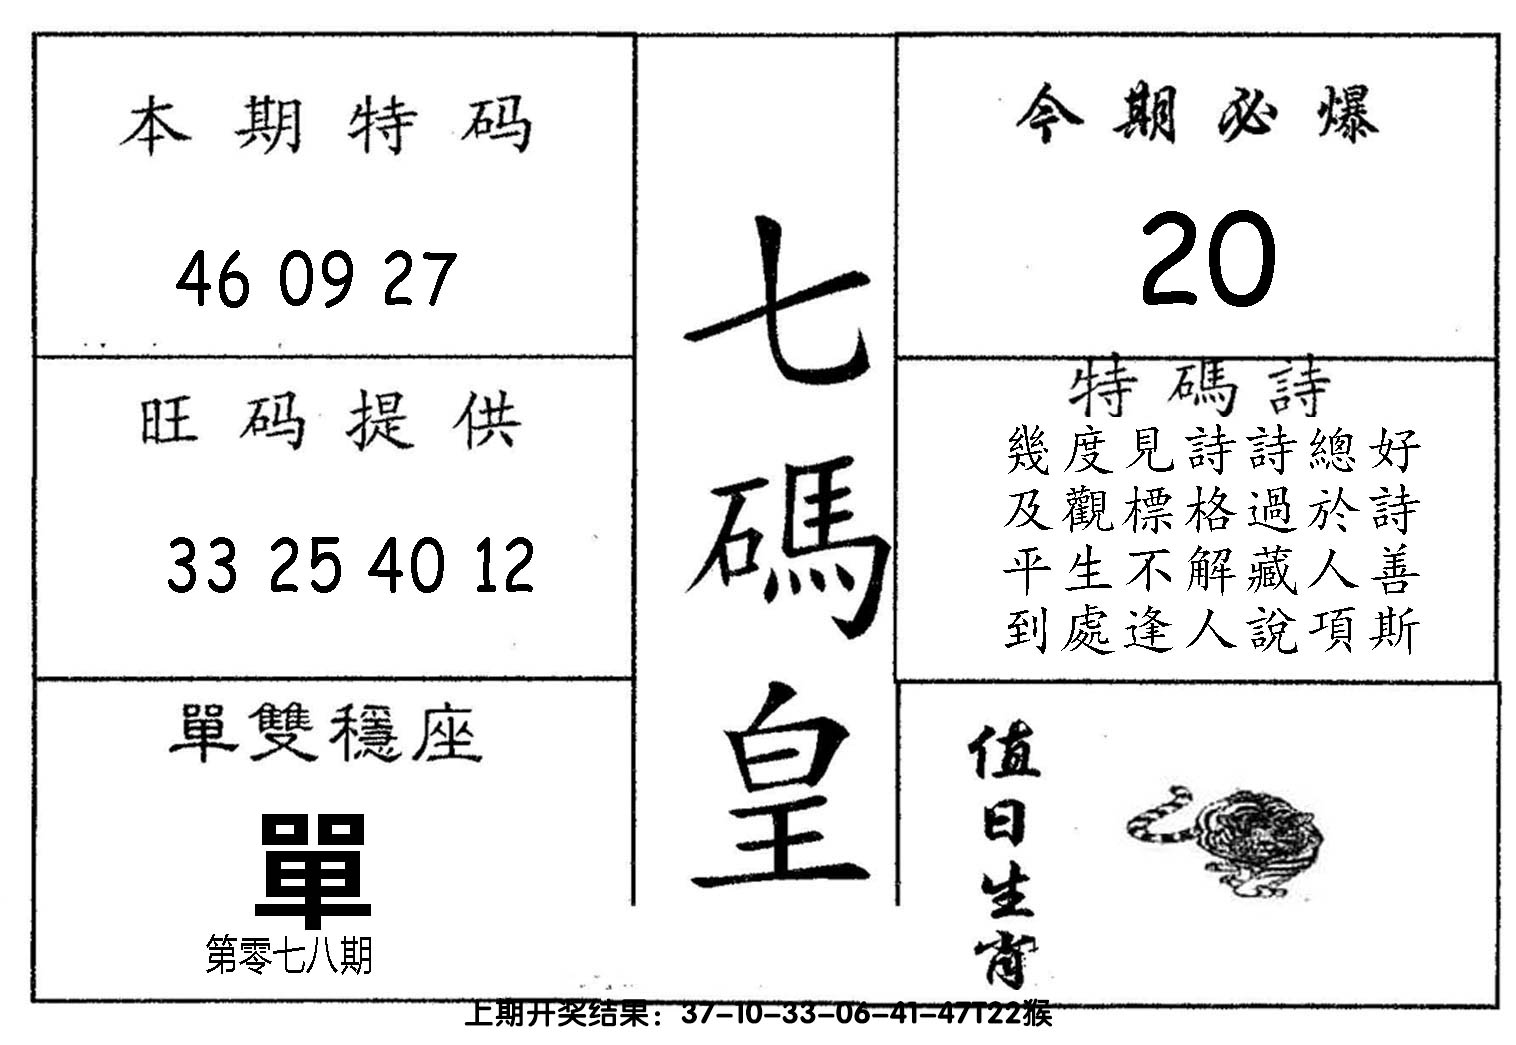 本期特码
46 09 27
旺码提供
33 25 40 12
單雙穩座
單
第零七八期
七碼皇
今期必爆
20
特碼詩
幾度見詩詩總好
及觀標格過於詩
平生不解藏人善
到處逢人說項斯
值日生肖
上期开奖结果：37-10-33-06-41-47T22猴